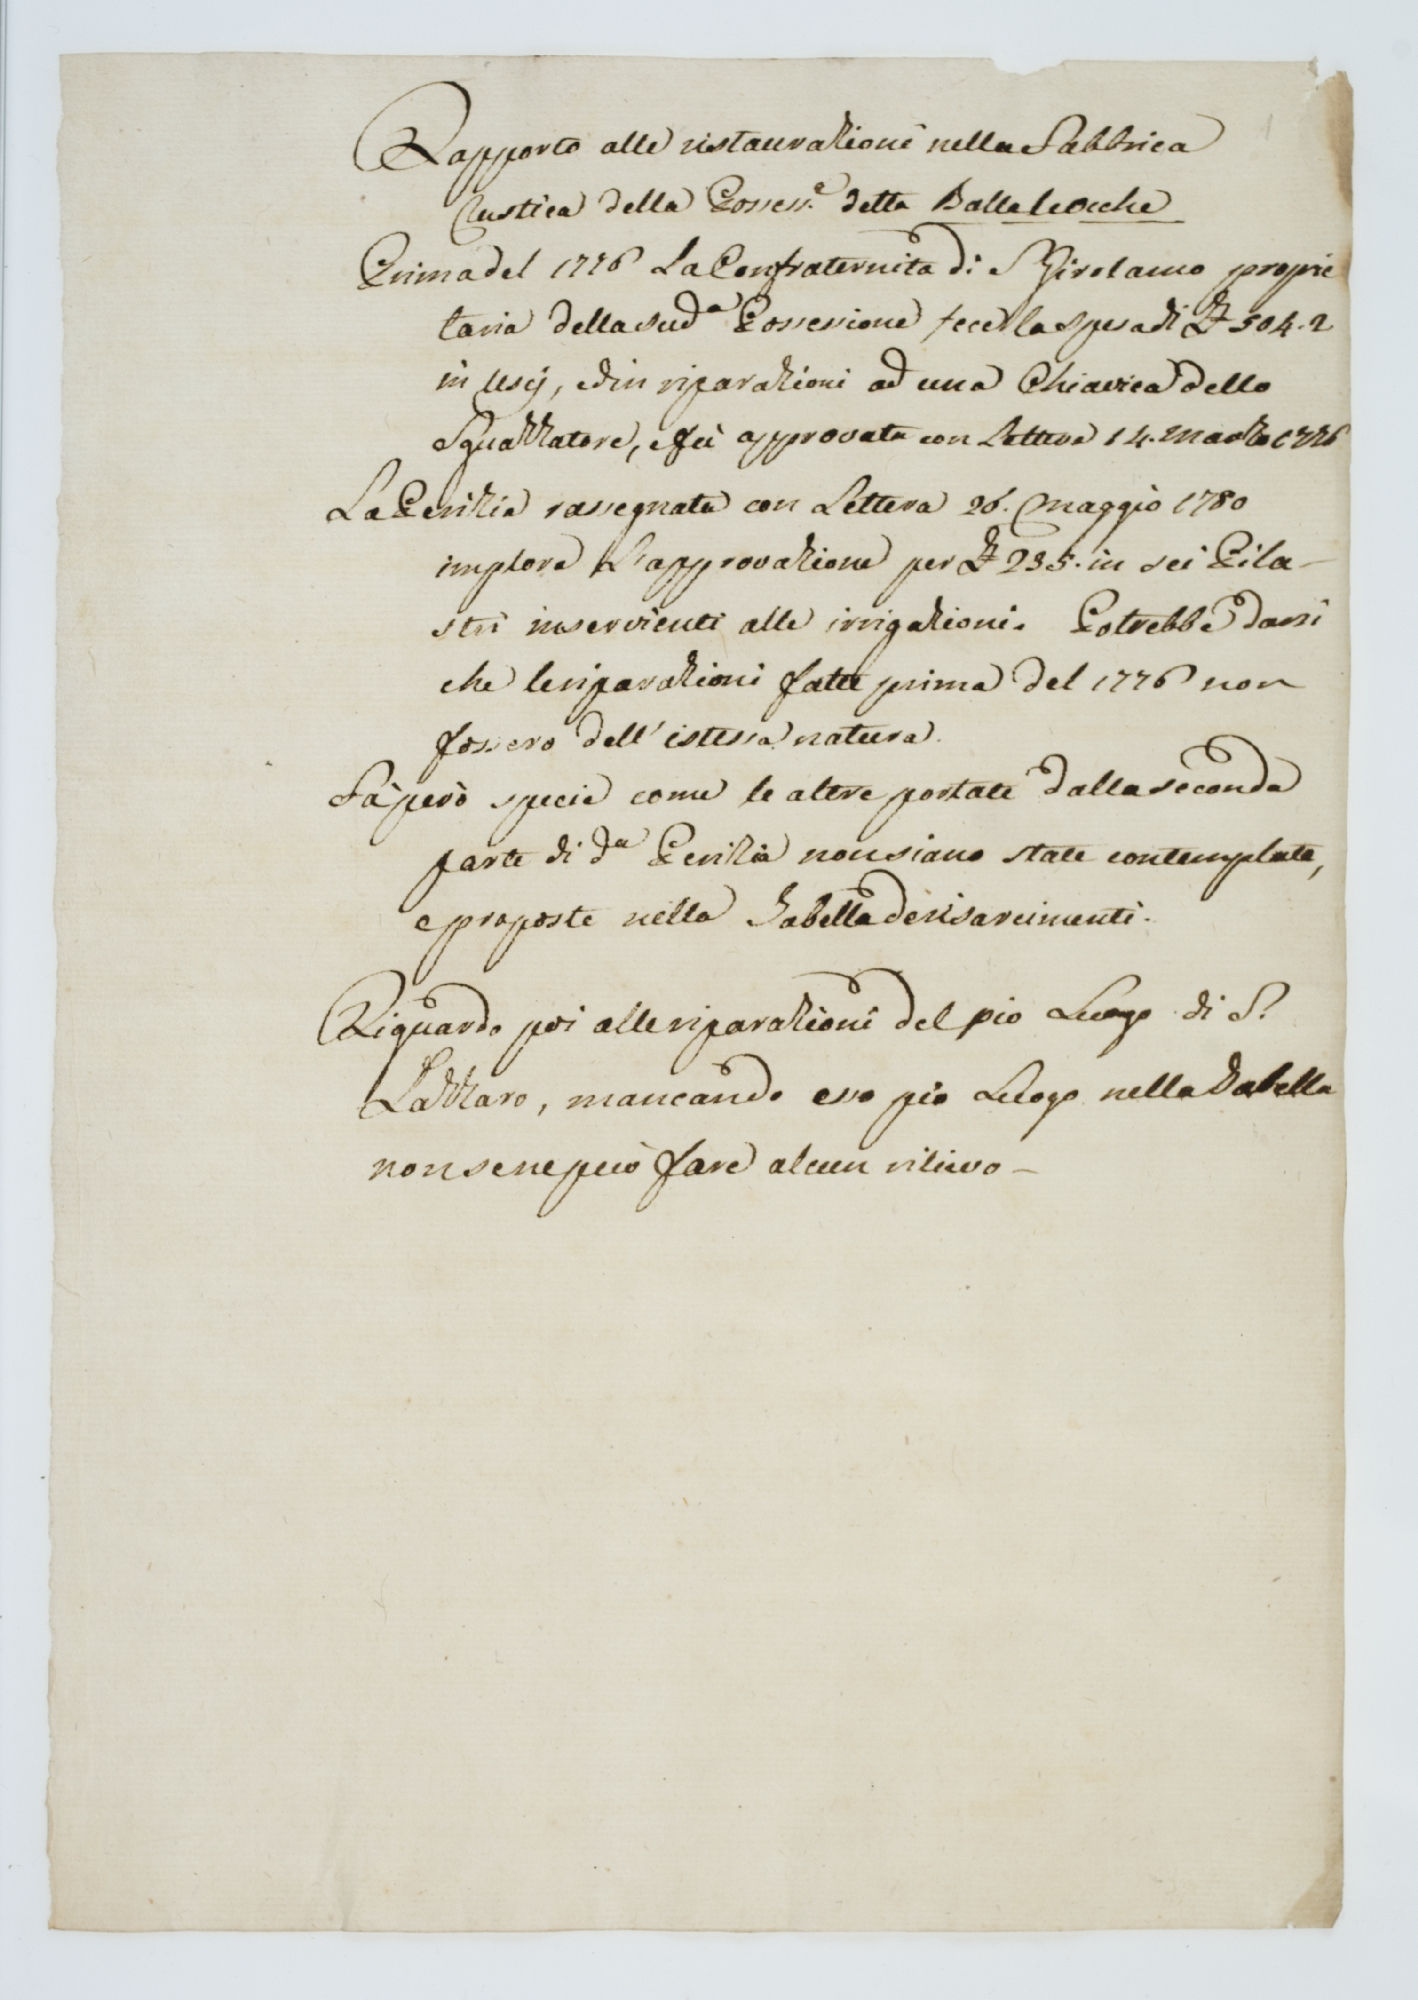 Rapporto alle ristaurazioni nella Fabbrica
Rustica della Possess.e detta Ballaleocche
Prima del 1776 La Confraternita di S Girolamo proprie
taria della sud.a Possessione fece la spesa di £ 504.2
in Uscj, ed in riparazioni ad una Chiavica dello
Sguazzatore, e fù approvata con Lettera 14. Marzo 1776
La Perizia rassegnata con Lettera 26. Maggio 1780
implora L'approvazione per £ 235. in sei Pila-
stri inservienti alle irrigazioni. Potrebbe darsi
che le riparazioni fatte prima del 1776 non
fossero dell'istessa natura.
Fà però specie come le altre portate dalla seconda
parte di d.a Perizia non siano state contemplate,
e proposte nella Tabella de risarcimenti.
Riguardo poi alle riparazioni del pio Luogo di S.
Lazzaro, mancando esso pio Luogo nella Tabella
non se ne può fare alcun rilievo-